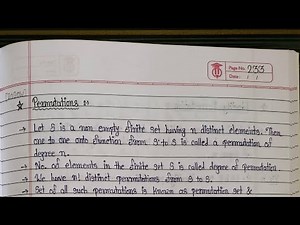 Page No. 233
Date: / /
☆ Permutations :-
→ Let S is a non empty finite set having n distinct elements. Then
one to one onto function from S to S is called a permutation of
degree n.
→ No. of elements in the finite set S is called degree of permutation.
→ We have n! distinct permutations from S to S.
→ Set of all such permutations is known as permutation set &